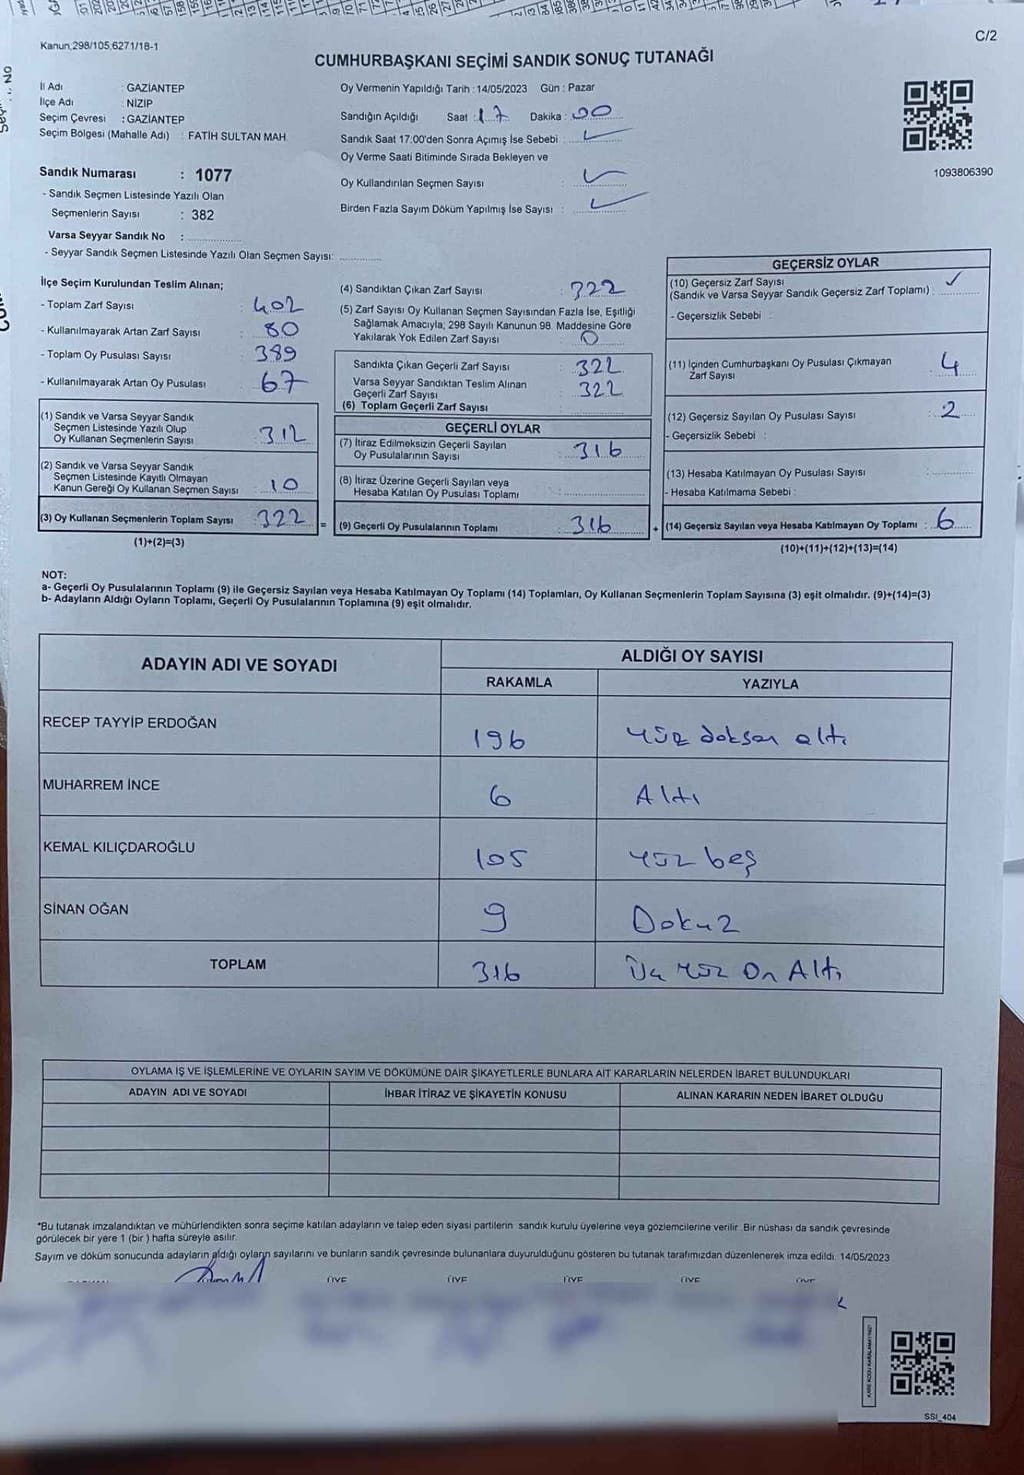 Kanun,298/105,6271/18-1
C/2
CUMHURBAŞKANI SEÇİMİ SANDIK SONUÇ TUTANAĞI
İl Adı : GAZİANTEP
İlçe Adı : NİZİP
Seçim Çevresi : GAZİANTEP
Seçim Bölgesi (Mahalle Adı) : FATİH SULTAN MAH.
Sandık Numarası : 1077
- Sandık Seçmen Listesinde Yazılı Olan
Seçmenlerin Sayısı : 382
Varsa Seyyar Sandık No :
- Seyyar Sandık Seçmen Listesinde Yazılı Olan Seçmen Sayısı:
Oy Vermenin Yapıldığı Tarih : 14/05/2023 Gün : Pazar
Sandığın Açıldığı Saat : 17 Dakika : 00
Sandık Saat 17.00'den Sonra Açımış İse Sebebi :
Oy Verme Saati Bitiminde Sırada Bekleyen ve
Oy Kullandırılan Seçmen Sayısı :
Birden Fazla Sayım Döküm Yapılmış İse Sayısı :
1093806390
İlçe Seçim Kurulundan Teslim Alınan;
- Toplam Zarf Sayısı : 402
- Kullanılmayarak Artan Zarf Sayısı : 80
- Toplam Oy Pusulası Sayısı : 389
- Kullanılmayarak Artan Oy Pusulası : 67
(1) Sandık ve Varsa Seyyar Sandık
Seçmen Listesinde Yazılı Olup
Oy Kullanan Seçmenlerin Sayısı : 312
(2) Sandık ve Varsa Seyyar Sandık
Seçmen Listesinde Kayıtlı Olmayan
Kanun Gereği Oy Kullanan Seçmen Sayısı : 10
(3) Oy Kullanan Seçmenlerin Toplam Sayısı : 322 =
(1)+(2)=(3)
(4) Sandıktan Çıkan Zarf Sayısı : 322
(5) Zarf Sayısı Oy Kullanan Seçmen Sayısından Fazla İse, Eşitliği
Sağlamak Amacıyla; 298 Sayılı Kanunun 98. Maddesine Göre
Yakılarak Yok Edilen Zarf Sayısı : 0
Sandıkta Çıkan Geçerli Zarf Sayısı : 322
Varsa Seyyar Sandıktan Teslim Alınan
Geçerli Zarf Sayısı : 322
(6) Toplam Geçerli Zarf Sayısı
GEÇERLİ OYLAR
(7) İtiraz Edilmeksizin Geçerli Sayılan
Oy Pusulalarının Sayısı : 316
(8) İtiraz Üzerine Geçerli Sayılan veya
Hesaba Katılan Oy Pusulası Toplamı :
(9) Geçerli Oy Pusulalarının Toplamı : 316 +
GEÇERSİZ OYLAR
(10) Geçersiz Zarf Sayısı
(Sandık ve Varsa Seyyar Sandık Geçersiz Zarf Toplamı) :
- Geçersizlik Sebebi :
(11) İçinden Cumhurbaşkanı Oy Pusulası Çıkmayan
Zarf Sayısı : 4
(12) Geçersiz Sayılan Oy Pusulası Sayısı : 2
- Geçersizlik Sebebi :
(13) Hesaba Katılmayan Oy Pusulası Sayısı :
- Hesaba Katılmama Sebebi :
(14) Geçersiz Sayılan veya Hesaba Katılmayan Oy Toplamı : 6
(10)+(11)+(12)+(13)=(14)
NOT:
a- Geçerli Oy Pusulalarının Toplamı (9) ile Geçersiz Sayılan veya Hesaba Katılmayan Oy Toplamı (14) Toplamları, Oy Kullanan Seçmenlerin Toplam Sayısına (3) eşit olmalıdır. (9)+(14)=(3)
b- Adayların Aldığı Oyların Toplamı, Geçerli Oy Pusulalarının Toplamına (9) eşit olmalıdır.
ADAYIN ADI VE SOYADI
ALDIĞI OY SAYISI
RAKAMLA YAZIYLA
RECEP TAYYİP ERDOĞAN 196 Yüz doksan altı
MUHARREM İNCE 6 Altı
KEMAL KILIÇDAROĞLU 105 Yüz beş
SİNAN OĞAN 9 Dokuz
TOPLAM 316 Üç Yüz On Altı
OYLAMA İŞ VE İŞLEMLERİNE VE OYLARIN SAYIM VE DÖKÜMÜNE DAİR ŞİKAYETLERLE BUNLARA AİT KARARLARIN NELERDEN İBARET BULUNDUKLARI
ADAYIN ADI VE SOYADI İHBAR İTİRAZ VE ŞİKAYETİN KONUSU ALINAN KARARIN NEDEN İBARET OLDUĞU
*Bu tutanak imzalandıktan ve mühürlendikten sonra seçime katılan adayların ve talep eden siyasi partilerin sandık kurulu üyelerine veya gözlemcilerine verilir. Bir nüshası da sandık çevresinde
görülecek bir yere 1 (bir) hafta süreyle asılır.
Sayım ve döküm sonucunda adayların aldığı oyların sayılarını ve bunların sandık çevresinde bulunanlara duyurulduğunu gösteren bu tutanak tarafımızdan düzenlenerek imza edildi. 14/05/2023
ÜYE ÜYE ÜYE ÜYE ÜYE
SSI_404